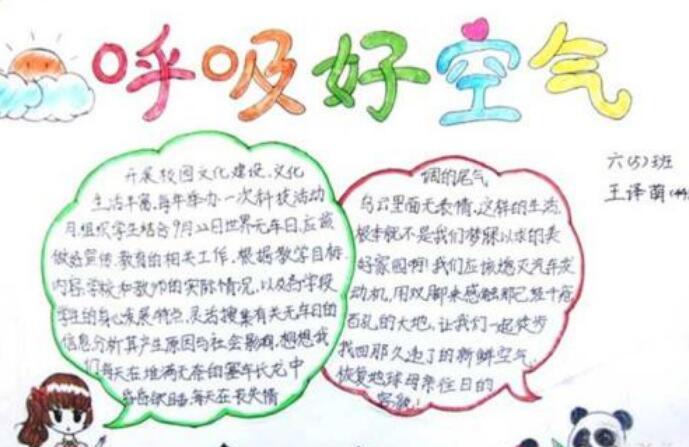 呼吸好空气
六(5)班
王译萌
开展校园文化建设、文化
生活丰富,每年举办一次科技活动
月,组织学生结合9月22日世界无车日,应该
做好宣传、教育的相关工作,根据教学目标、
内容,学校和教师的实际情况,以及各学段
学生的身心发展特点,灵活搜集有关无车日的
信息分析其产生原因与社会影响,想想我
们每天在堆满无奈的塞车长龙中
昏昏欲睡,每天在表情
调的尾气
乌云里面无表情,这样的生活,
根本就不是我们梦寐以求的美
好家园啊!我们应该熄灭汽车发
动机,用双脚来感触那已经千疮
百孔的大地,让我们一起徒步
找回那久违了的新鲜空气,
恢复地球母亲往日的
容貌!